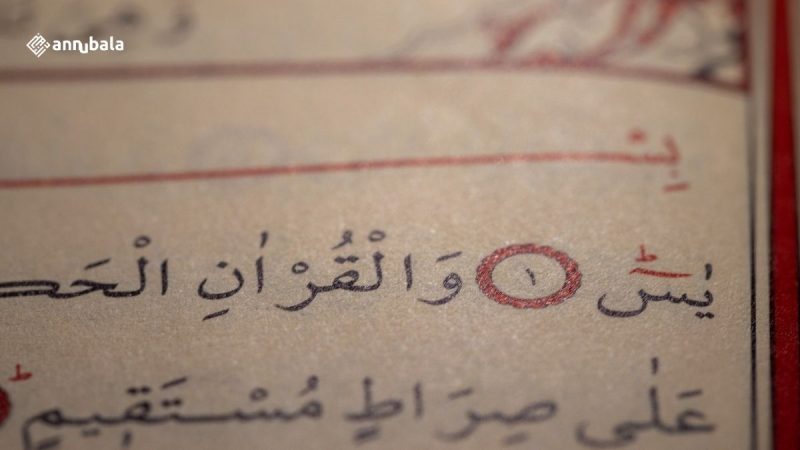 annubala
يٰسٓ ١ وَالْقُرْاٰنِ
عَلٰى صِرَاطٍ مُسْتَق۪يمٍ